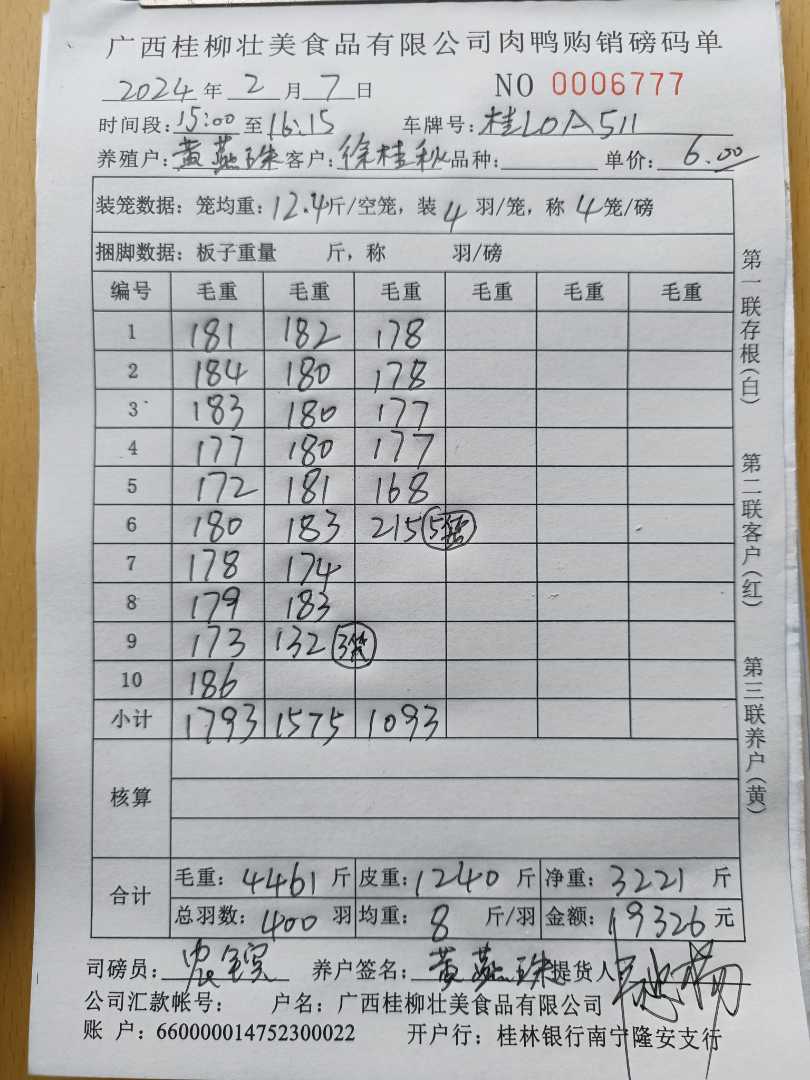 广西桂柳壮美食品有限公司肉鸭购销磅码单
2024 年 2 月 7 日 NO 0006777
时间段: 15:00 至 16:15 车牌号: 桂LOA511
养殖户: 黄燕珠 客户: 徐桂秋 品种: 单价: 6.00
装笼数据: 笼均重: 12.4 斤/空笼, 装 4 羽/笼, 称 4 笼/磅
捆脚数据: 板子重量 斤, 称 羽/磅
编号 毛重 毛重 毛重 毛重 毛重 毛重
1 181 182 178
2 184 180 178
3 183 180 177
4 177 180 177
5 172 181 168
6 180 183 215 5笼
7 178 174
8 179 183
9 173 132 3笼
10 186
小计 1793 1575 1093
核算
合计
毛重: 4461 斤 皮重: 1240 斤 净重: 3221 斤
总羽数: 400 羽 均重: 8 斤/羽 金额: 19326 元
司磅员: 养户签名: 黄燕珠 提货人
公司汇款帐号: 户名: 广西桂柳壮美食品有限公司
账 户: 660000014752300022 开户行: 桂林银行南宁隆安支行
第一联存根(白)
第二联客户(红)
第三联养户(黄)